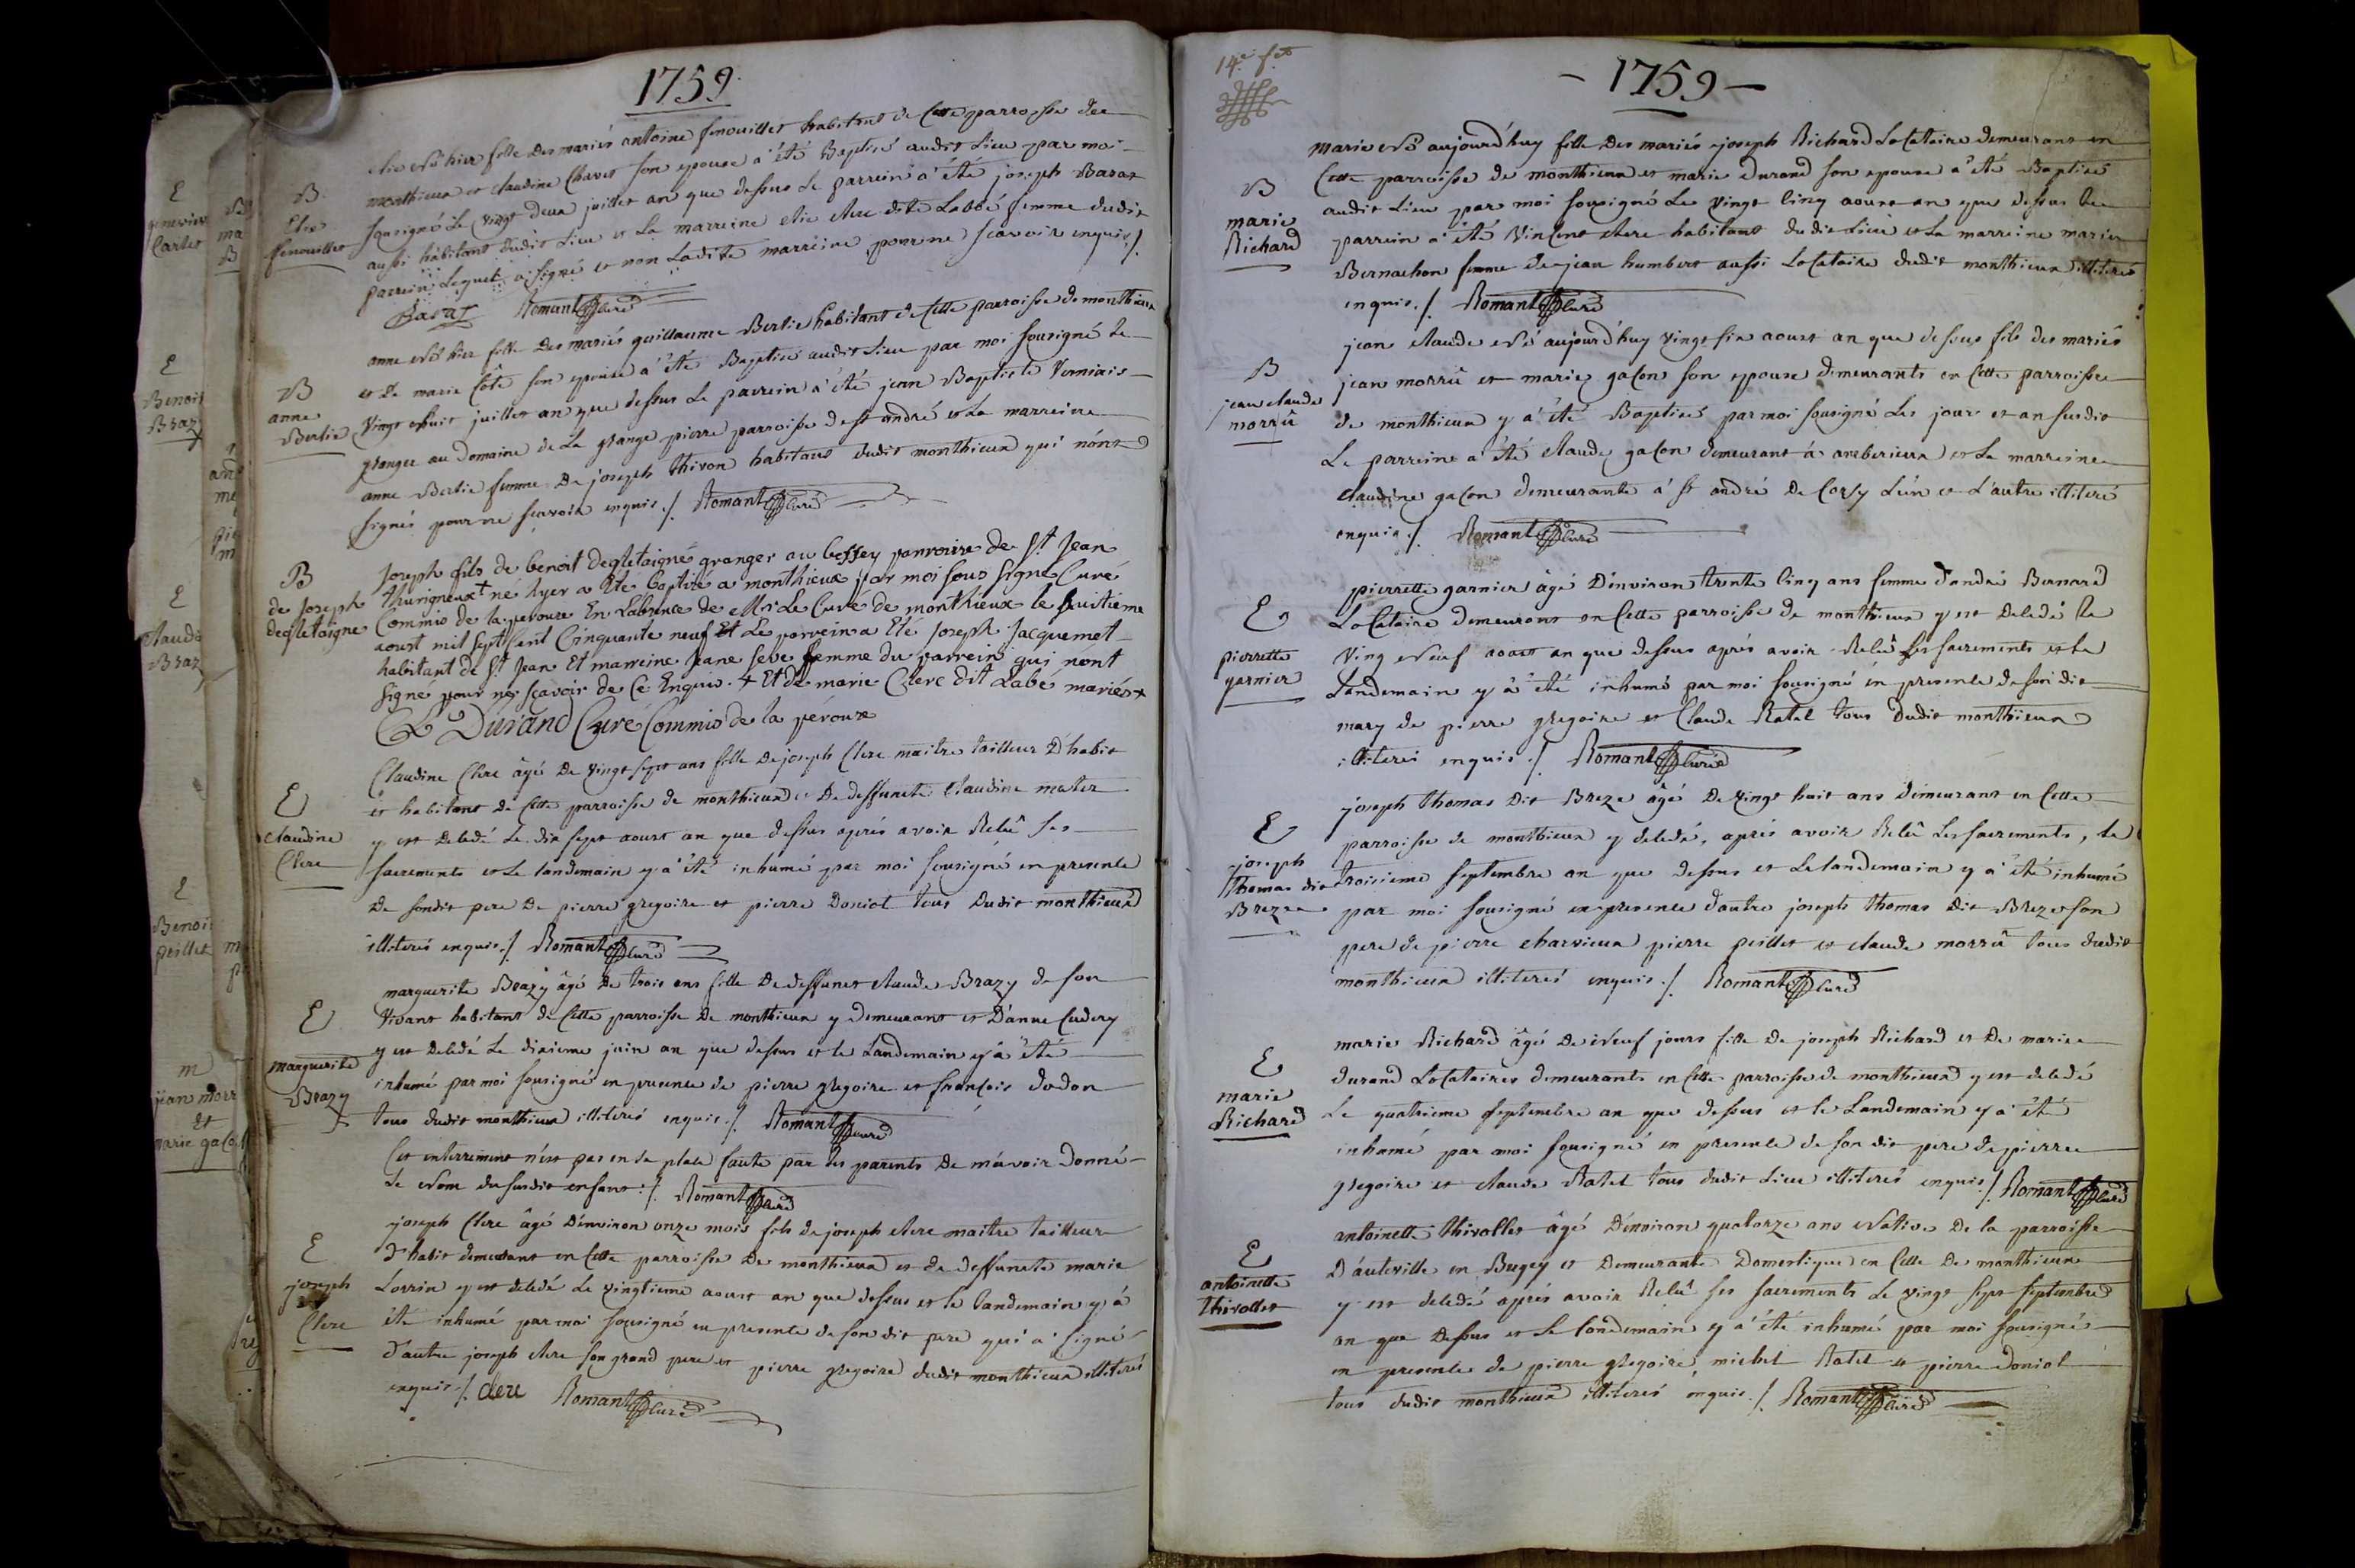 1759
B
Elie
fenouillet
elie né hier fille des mariés antoine fenouillet habitant de Cette parroisse de
monthieux et claudine Chavet son epouse a été Baptisé audit Lieu par moi
sousigné Le vingt deux juillet an que dessus Le parrein a été joseph Barat
aussi habitant dudit Lieu et La marreine elie clere dite Labbé femme dudit
parrein Lequel a signé et non Ladite marreine pour ne scavoir enquis ./.
Barat Romant Curé
B
anne
Berlie
anne né hier fille des mariés guillaume Berlie habitant de Cette parroisse de monthieux
et de marie Côte son epouse a été Baptisé audit Lieu par moi sousigné le
vingt huit juillet an que dessus Le parrein a été jean Baptiste Verniais
granger au domaine de La grange pierre parroisse de st andré et La marreine
anne Berlie femme de joseph thivon habitant dudit monthieux qui nónt
signés pour ne scavoir enquis ./. Romant Curé
B
de Joseph
degletaigne
Joseph fils de benoit degletaigne granger au bessey parroisse de St Jean
thurigneux + né hyer a Eté baptisé a monthieux par moi sous signé Curé
Commis de la peroure En Labsence de Mr Le Curé de monthieux le huitieme
aoust mil sept Cent Cinquante neuf Et Le parrein a Eté Joseph Jacquemet
habitant de St Jean Et marreine Jeane seve femme du parrein qui nónt
signe pour ne scavoir de Ce Enquis. + Et de marie Clerc dit Labé mariés +
Durand Curé Commis de la pérouze
E
Claudine
Clere
Claudine Clere âgé de vingt sept ans fille de joseph Clere maitre tailleur D'habit
et habitant de Cette parroisse de monthieux et De deffuncte Claudine mater
y est deledé Le dix sept aoust an que dessus aprés avoir Relû ses
sacrements et Le landemain y a été inhumé par moi sousigné en presence
De sondit pere De pierre gregoire et pierre Doniol tous Dudit monthieux
illiterés enquis ./. Romant Curé
E
marguerite
Brazy
marguerite Brazy âgé de trois ans fille De deffunct claude Brazy de son
vivant habitant de Cette parroisse de monthieux y demeurant et D'anne Cudery
y est deledé Le dixieme juin an que dessus et le Landemain y a été
inhumé par moi sousigné en presence de pierre gregoire et françois dodon
tous dudit monthieux illiterés enquis ./. Romant Curé
Cet interrement n'est pas en sa place faute par les parents De m'avoir donné
le Nom du susdit enfant ./. Romant Curé
E
joseph
Clere
joseph Clere âgé D'environ onze mois fils de joseph clere maitre tailleur
d'habit demeurant en Cette parroisse De monthieux et de deffuncte marie
Lorrin y est deledé Le vingtieme aoust an que dessus et le landemain y a
été inhumé par moi sousigné en presence de son dit pere qui a signé
d'autre joseph clere son grand pere et pierre gregoire dudit monthieux illiterés
enquis ./. clere Romant Curé
14e ft
- 1759 -
B
marie
Richard
marie Né aujourd'huy fille des mariés joseph Richard Locataire demeurant en
Cette parroisse de monthieux et marie durand son epouse a été Baptisé
audit Lieu par moi sousigné Le vingt Cinq aoust an que dessus Le
parrein a été Vincent clere habitant dudit Lieu et La marreine marie
Bernachon femme de jean humbert aussi Locataire dudit monthieux illiterés
enquis ./. Romant Curé
B
jean claude
morrû
jean claude Né aujourd'huy vingt six aoust an que dessus fils des mariés
jean morrû et marie gaCon son epouse demeurants en Cette parroisse
de monthieux y a été Baptisé par moi sousigné Les jour et an susdit
Le parreine a été claude gaCon demeurant á amberieux et La marreine
Claudine gaCon demeurante á st andré De Corsy L'ún et L'autre illiteré
enquis ./. Romant Curé
E
pierrette
garnier
pierrette garnier âgé D'environ trente Cinq ans femme d'andré Bernard
LoCataire demeurant en Cette parroisse de monthieux y est deledé le
Ving Neuf aoust an que dessus aprés avoir Relû Les sacrements et Le
Landemain y â été inhumé par moi sousigné en presence de son dit
mary de pierre gregoire et Claude Ratel tous dudit monthieux
illiterés enquis ./. Romant Curé
E
joseph
thomas dit
Breze
joseph thomas Dit Breze âgé De vingt huit ans demeurant en Cette
parroisse de monthieux y deledé, aprés avoir Relû Les sacrements, le
troisieme septembre an que dessus et Le landemain y a été inhumé
par moi sousigné en presence d'autre joseph thomas Dit Breze son
pere de pierre charvieux pierre peillet et claude morrû tous dudit
monthieux illiterés enquis ./. Romant Curé
E
marie
Richard
marie Richard âgé De Neuf jours fille De joseph Richard et De marie
durand LoCataires demeurants en Cette parroisse de monthieux y est deledé
Le quatrieme septembre an que dessus et le Landemain y a été
inhumé par moi sousigné en presence de son dit pere de pierre
gregoire et claude Ratel tous dudit Lieu illiterés enquis ./. Romant Curé
E
antoinette
thivollet
antoinette thivollet âgé D'environ quatorze ans Native De la parroisse
D'auteville en Bugey et Demeurante Domestique en Cette De monthieux
y est deledé aprés avoir Relû ses sacrements Le vingt sept septembre
an que Dessus et Le landemain y a été inhumé par moi sousigné
en presence de pierre gregoire michel Ratel et pierre doniol
tous dudit monthieux illiterés enquis ./. Romant Curé